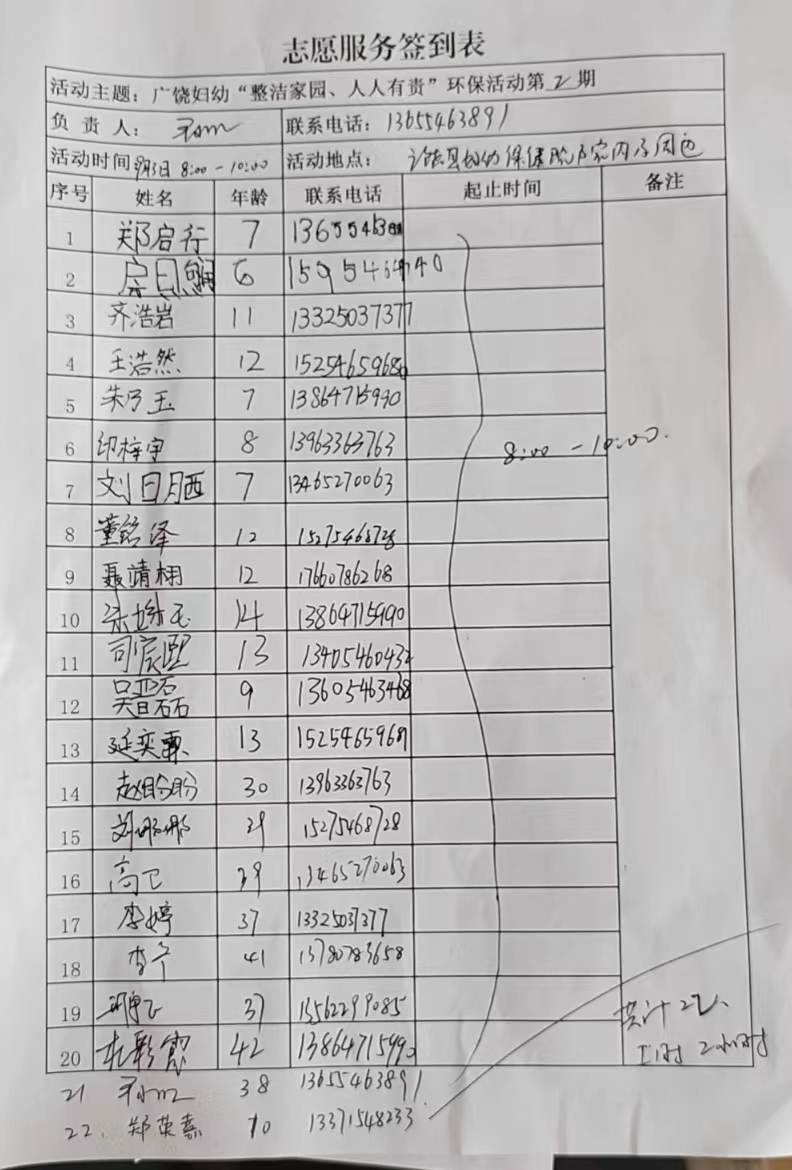 志愿服务签到表
活动主题：广饶妇幼“整洁家园、人人有责”环保活动第2期
负责人： 联系电话：13655463891
活动时间 9月3日 8:00-10:00 活动地点： 广饶县妇幼保健院
序号 姓名 年龄 联系电话 起止时间 备注
1 郑启行 7
2 6
3 齐浩岩 11 13325037377
4 王浩然 12 1525465968
5 朱乃玉 7 13864715990
6 印梓宇 8 13963363763
7 刘日月西 7 13465270063
8 董铭泽 12 15275468728
9 聂靖栩 12 17660786268
10 14 13864715990
11 司宸熙 13 1340546043
12 9 13605463468
13 延奕霖 13 1525465968
14 赵盼盼 30 13963363763
15 刘娜娜 15275468728
16 高卫 39 13465270063
17 李婷 37 13325037377
18 李 41 13780783658
19 37 13562299085
20 杜彩霞 42 13864715990
8:00-10:00.
共计22人、
工时 2小时
21 38 13655463891
22. 郑荣嘉 10 13371548233